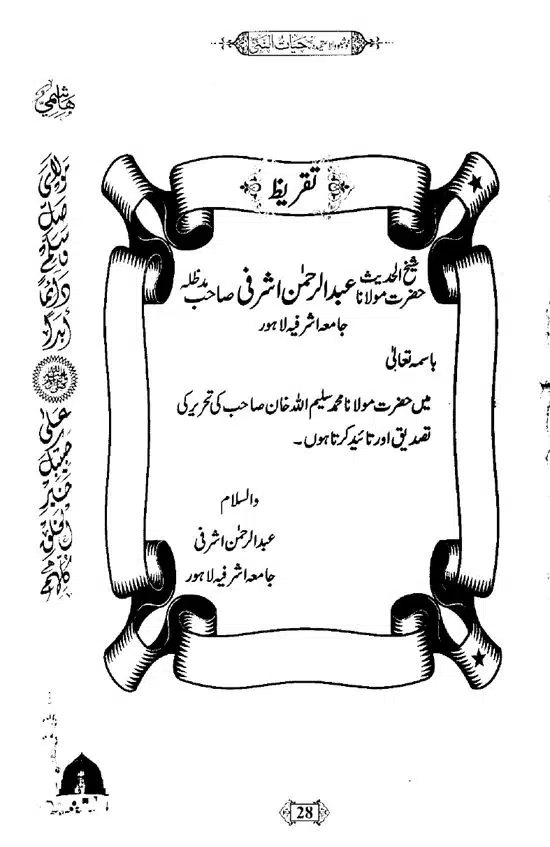 خوشبو والا عقیدہ حیات النبی
ہاشمی
مولای صل وسلم دائما ابدا
علی حبیبک خیر الخلق کلهم
تقریظ
شیخ الحدیث حضرت مولانا عبدالرحمٰن اشرفی صاحب مدظلہ
جامعہ اشرفیہ لاہور
باسمہ تعالیٰ
میں حضرت مولانا محمد سلیم اللہ خان صاحب کی تحریر کی
تصدیق اور تائید کرتا ہوں۔
والسلام
عبدالرحمٰن اشرفی
جامعہ اشرفیہ لاہور
28